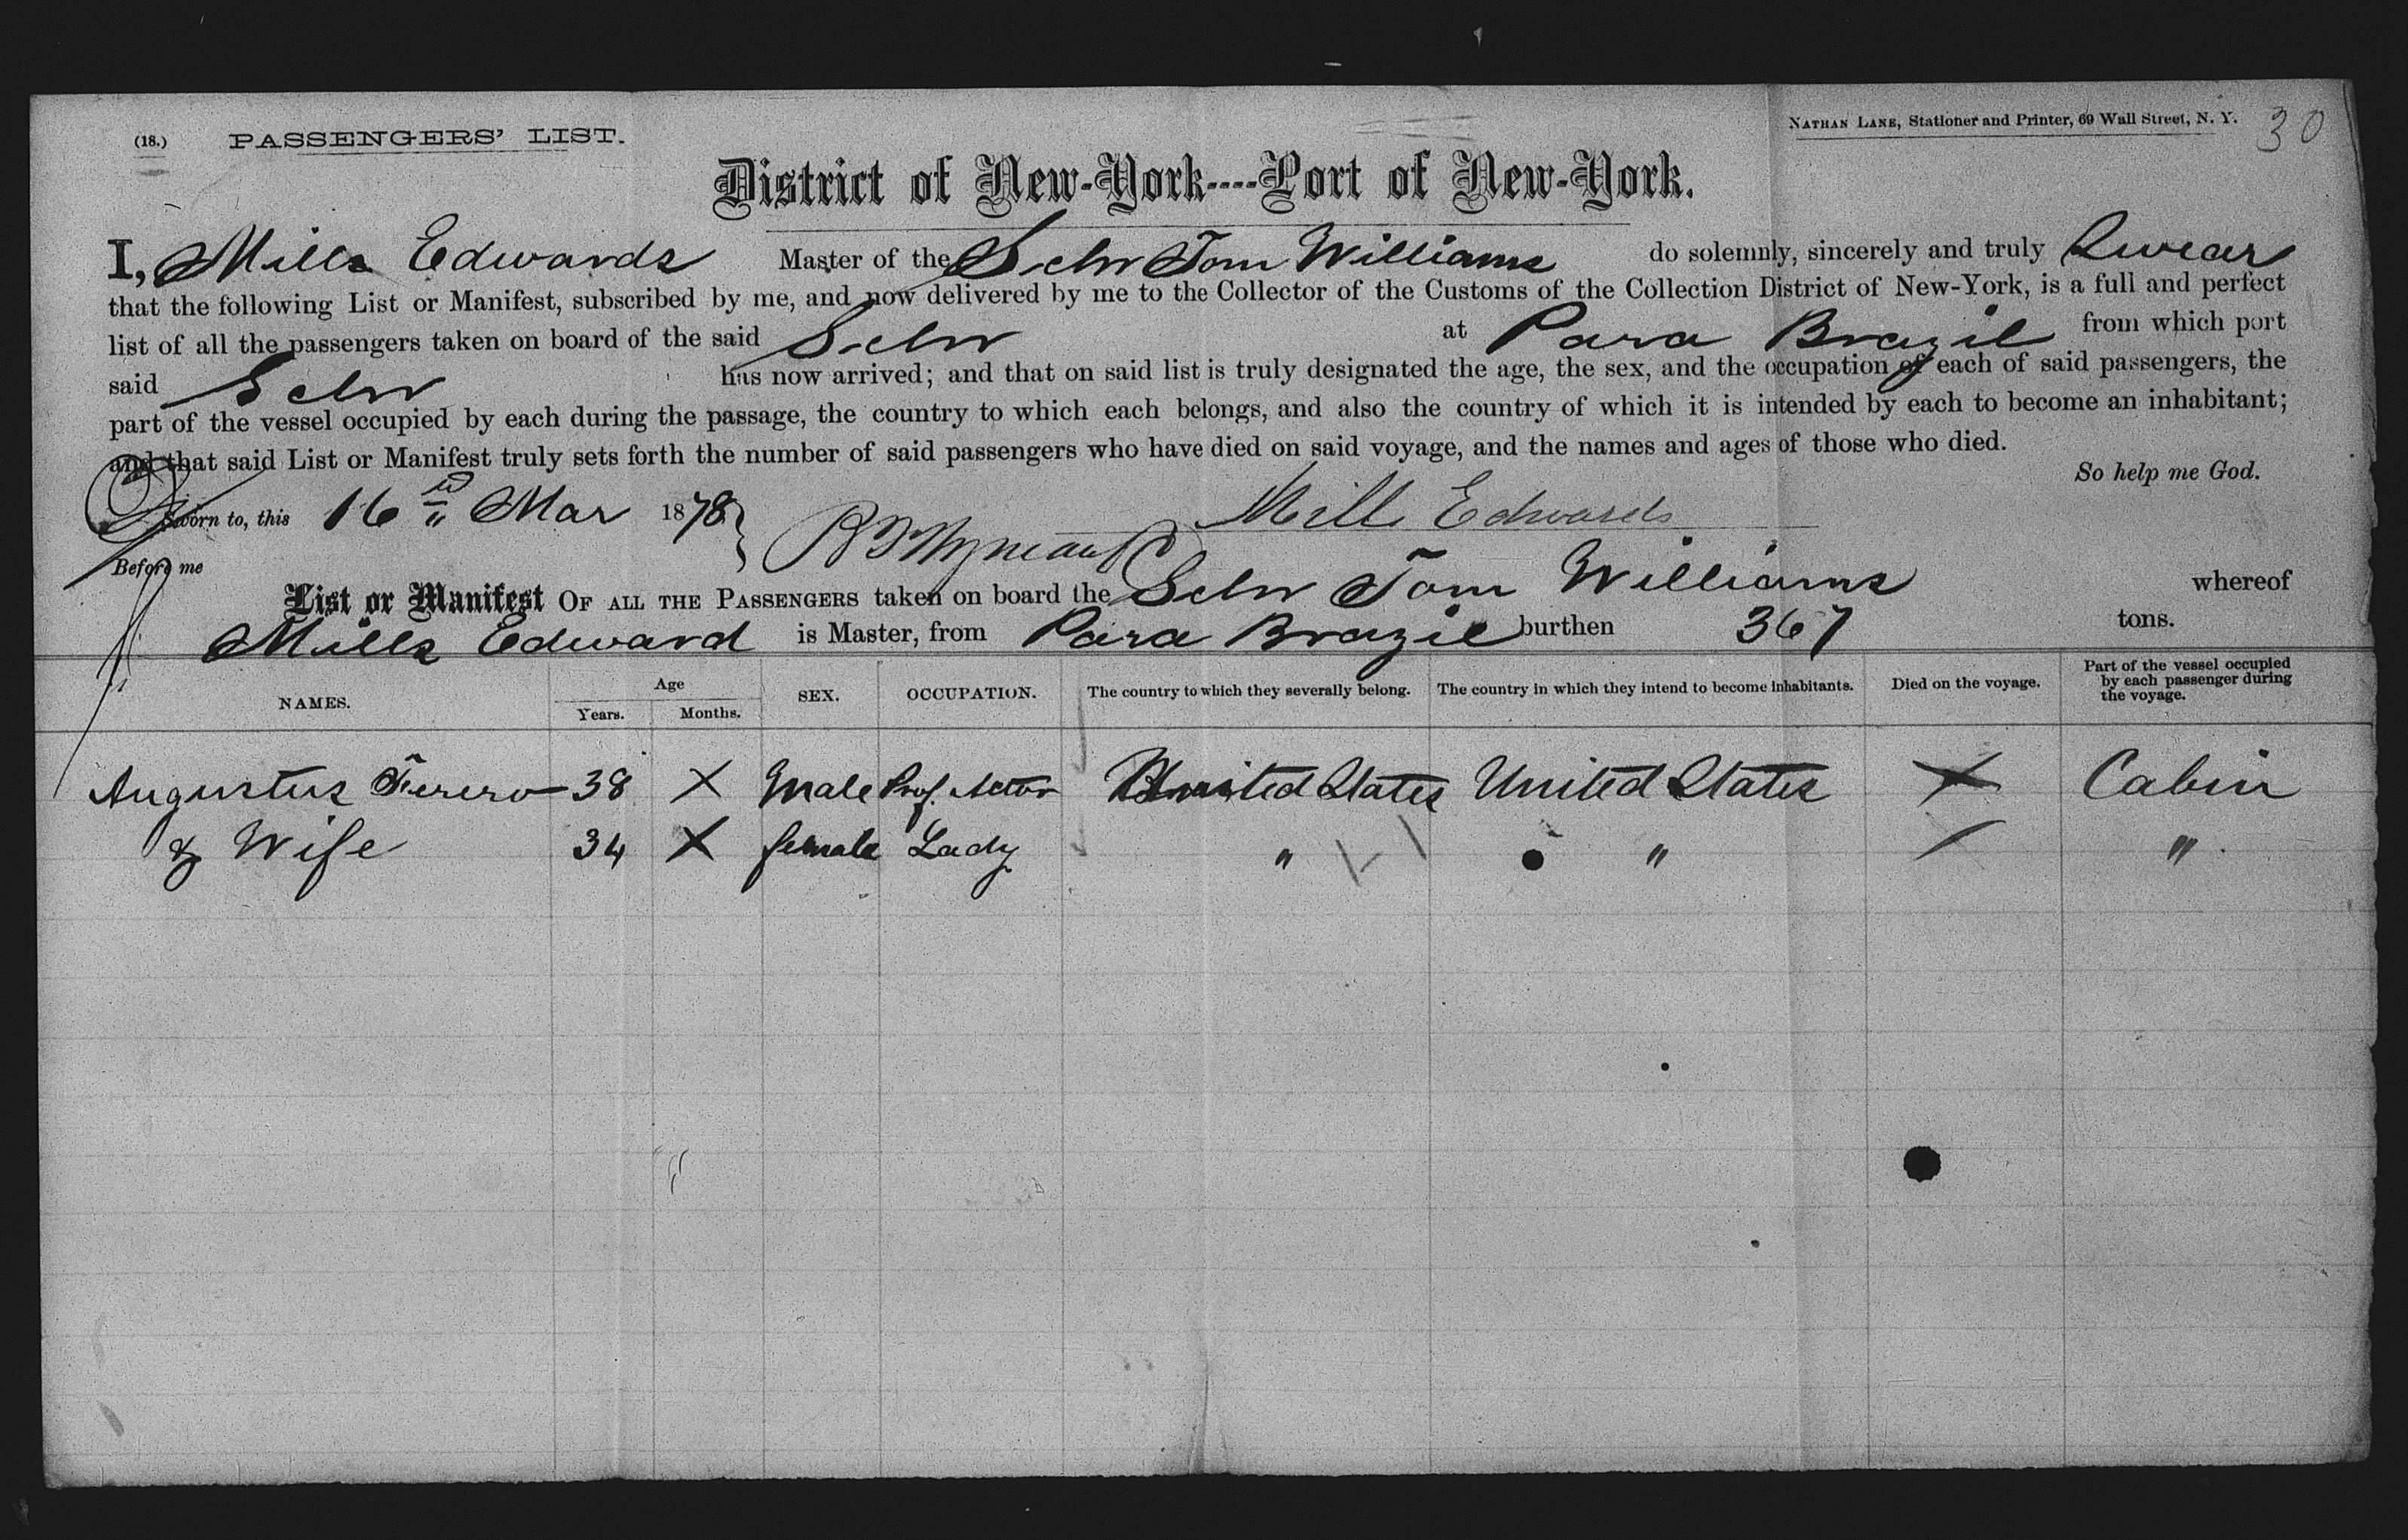 (18.) PASSENGERS' LIST.
NATHAN LANE, Stationer and Printer, 69 Wall Street, N. Y. 30
District of New-York----Port of New-York.
I, Mills Edwards Master of the Schr Tom Williams do solemnly, sincerely and truly Swear
that the following List or Manifest, subscribed by me, and now delivered by me to the Collector of the Customs of the Collection District of New-York, is a full and perfect
list of all the passengers taken on board of the said Schr at Para Brazil from which port
said Schr has now arrived; and that on said list is truly designated the age, the sex, and the occupation of each of said passengers, the
part of the vessel occupied by each during the passage, the country to which each belongs, and also the country of which it is intended by each to become an inhabitant;
and that said List or Manifest truly sets forth the number of said passengers who have died on said voyage, and the names and ages of those who died.
So help me God.
Sworn to, this 16 Mar 1878 Mills Edwards
Before me
List or Manifest OF ALL THE PASSENGERS taken on board the Schr Tom Williams whereof
Mills Edward is Master, from Para Brazil burthen 367 tons.
NAMES. Age Years. Months. SEX. OCCUPATION. The country to which they severally belong. The country in which they intend to become inhabitants. Died on the voyage. Part of the vessel occupied by each passenger during the voyage.
Augustus Ferero 38 X Male Prof. Actor United States United States X Cabin
& Wife 34 X female Lady " " / "